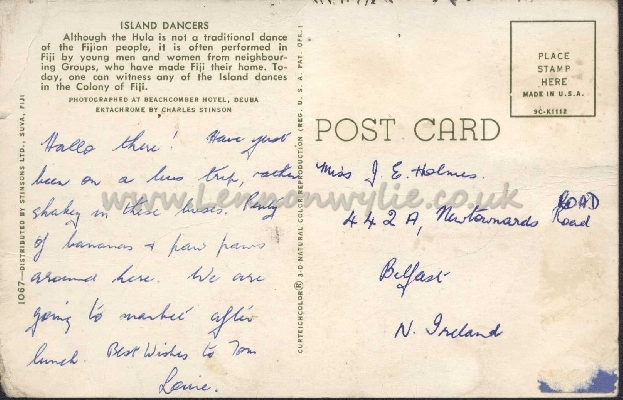 ISLAND DANCERS
Although the Hula is not a traditional dance
of the Fijian people, it is often performed in
Fiji by young men and women from neighbour-
ing Groups, who have made Fiji their home. To-
day, one can witness any of the Island dances
in the Colony of Fiji.
PHOTOGRAPHED AT BEACHCOMBER HOTEL, DEUBA
EKTACHROME BY CHARLES STINSON
Hallo there! Have just
been on a bus trip, rather
shakey in these buses. Plenty
of bananas & paw paws
around here. We are
going to market after
lunch. Best Wishes to Tom
1067—DISTRIBUTED BY STINSONS LTD., SUVA, FIJI
CURTEICHCOLOR® 3-D NATURAL COLOR REPRODUCTION (REG. U. S. A. PAT. OFF.)
POST CARD
PLACE
STAMP
HERE
MADE IN U.S.A.
9C-K1112
Miss J. E. Holmes.
ROAD
442A, Newtownards Road
Belfast
N. Ireland
www.Lennonwylie.co.uk